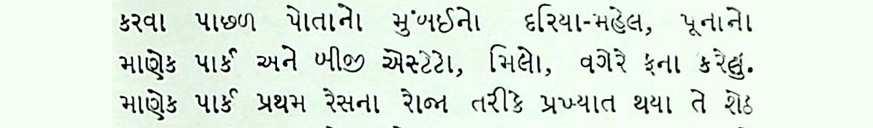 કરવા પાછળ પોતાનો મુંબઈનો દરિયા-મહેલ, પૂનાનો
માણેક પાર્ક અને બીજી એસ્ટેટો, મિલો, વગેરે ફના કરેલું.
માણેક પાર્ક પ્રથમ રેસના રાજા તરીકે પ્રખ્યાત થયા તે શેઠ